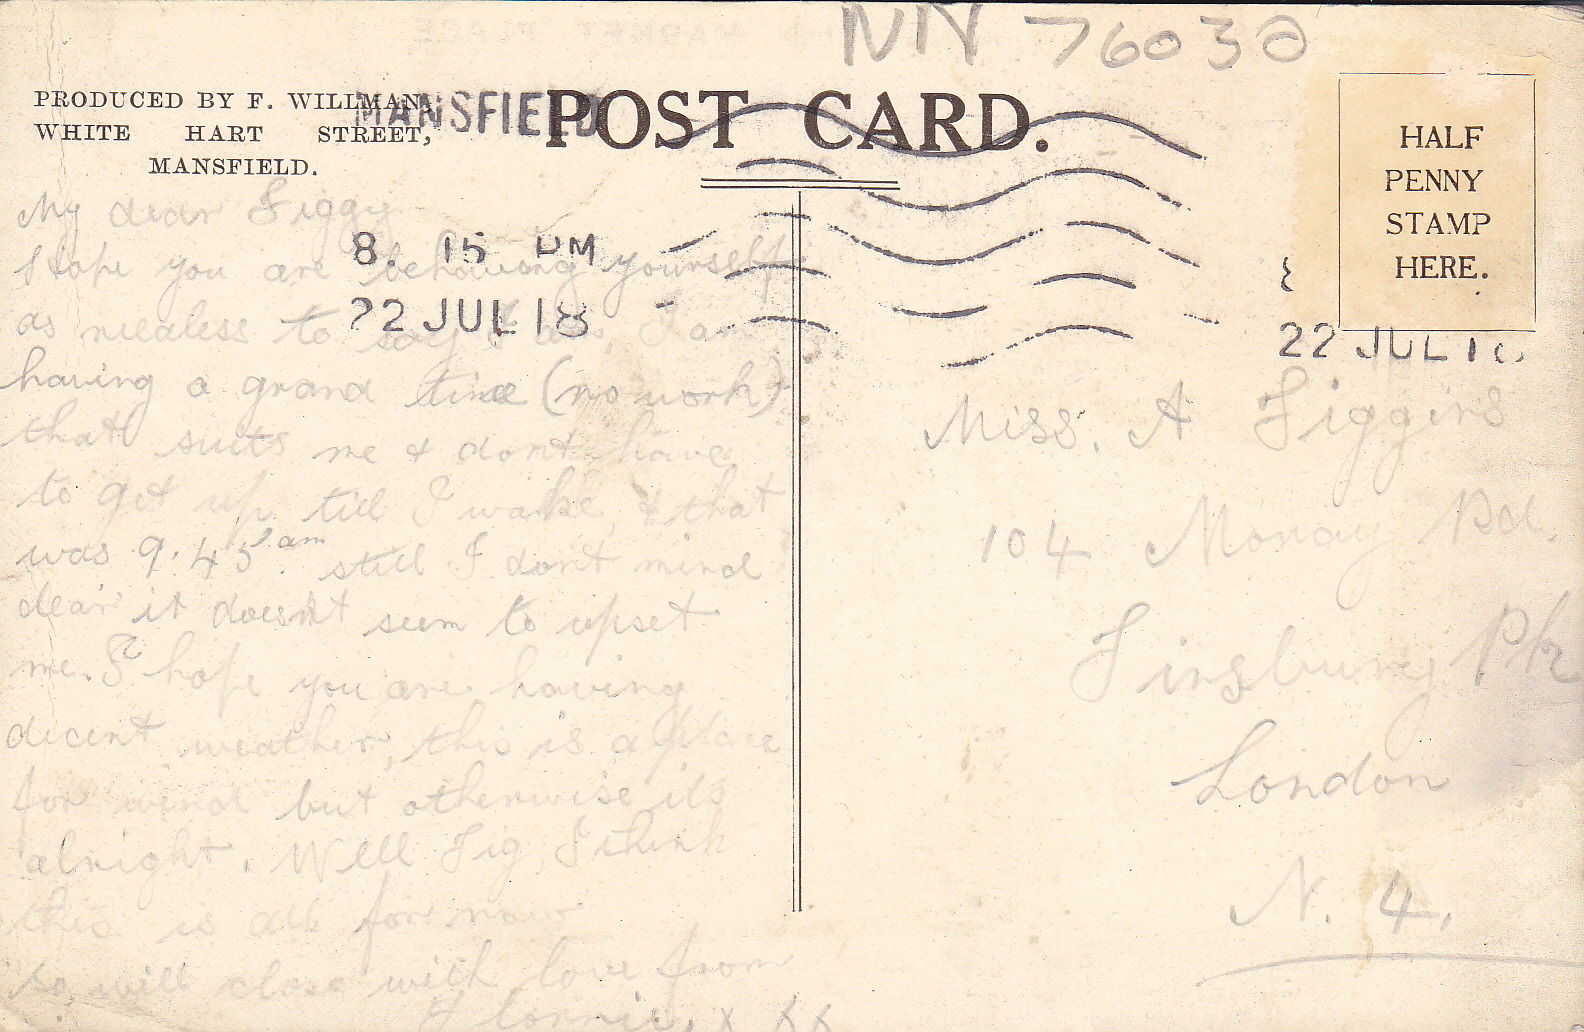 NN 76030
PRODUCED BY F. WILLMAN,
WHITE HART STREET,
MANSFIELD.
MANSFIELD
POST CARD.
HALF
PENNY
STAMP
HERE.
8. 15 PM
22 JUL 18
22 JUL 18
My dear Figgy
I hope you are behaving yourself
as needless to say I am, I am
having a grand time (no work)
that suits me & don't have
to get up till I wake, & that
was 9.45 am. still I don't mind
dear it doesn't seem to upset
me. I hope you are having
decent weather, this is a place
for wind but otherwise its
alright. Well Fig, I think
this is all for now
so will close with love from
Florrie. x x x
Miss. A Figgins
104 Moray Rd.
Finsbury Pk
London
N. 4.